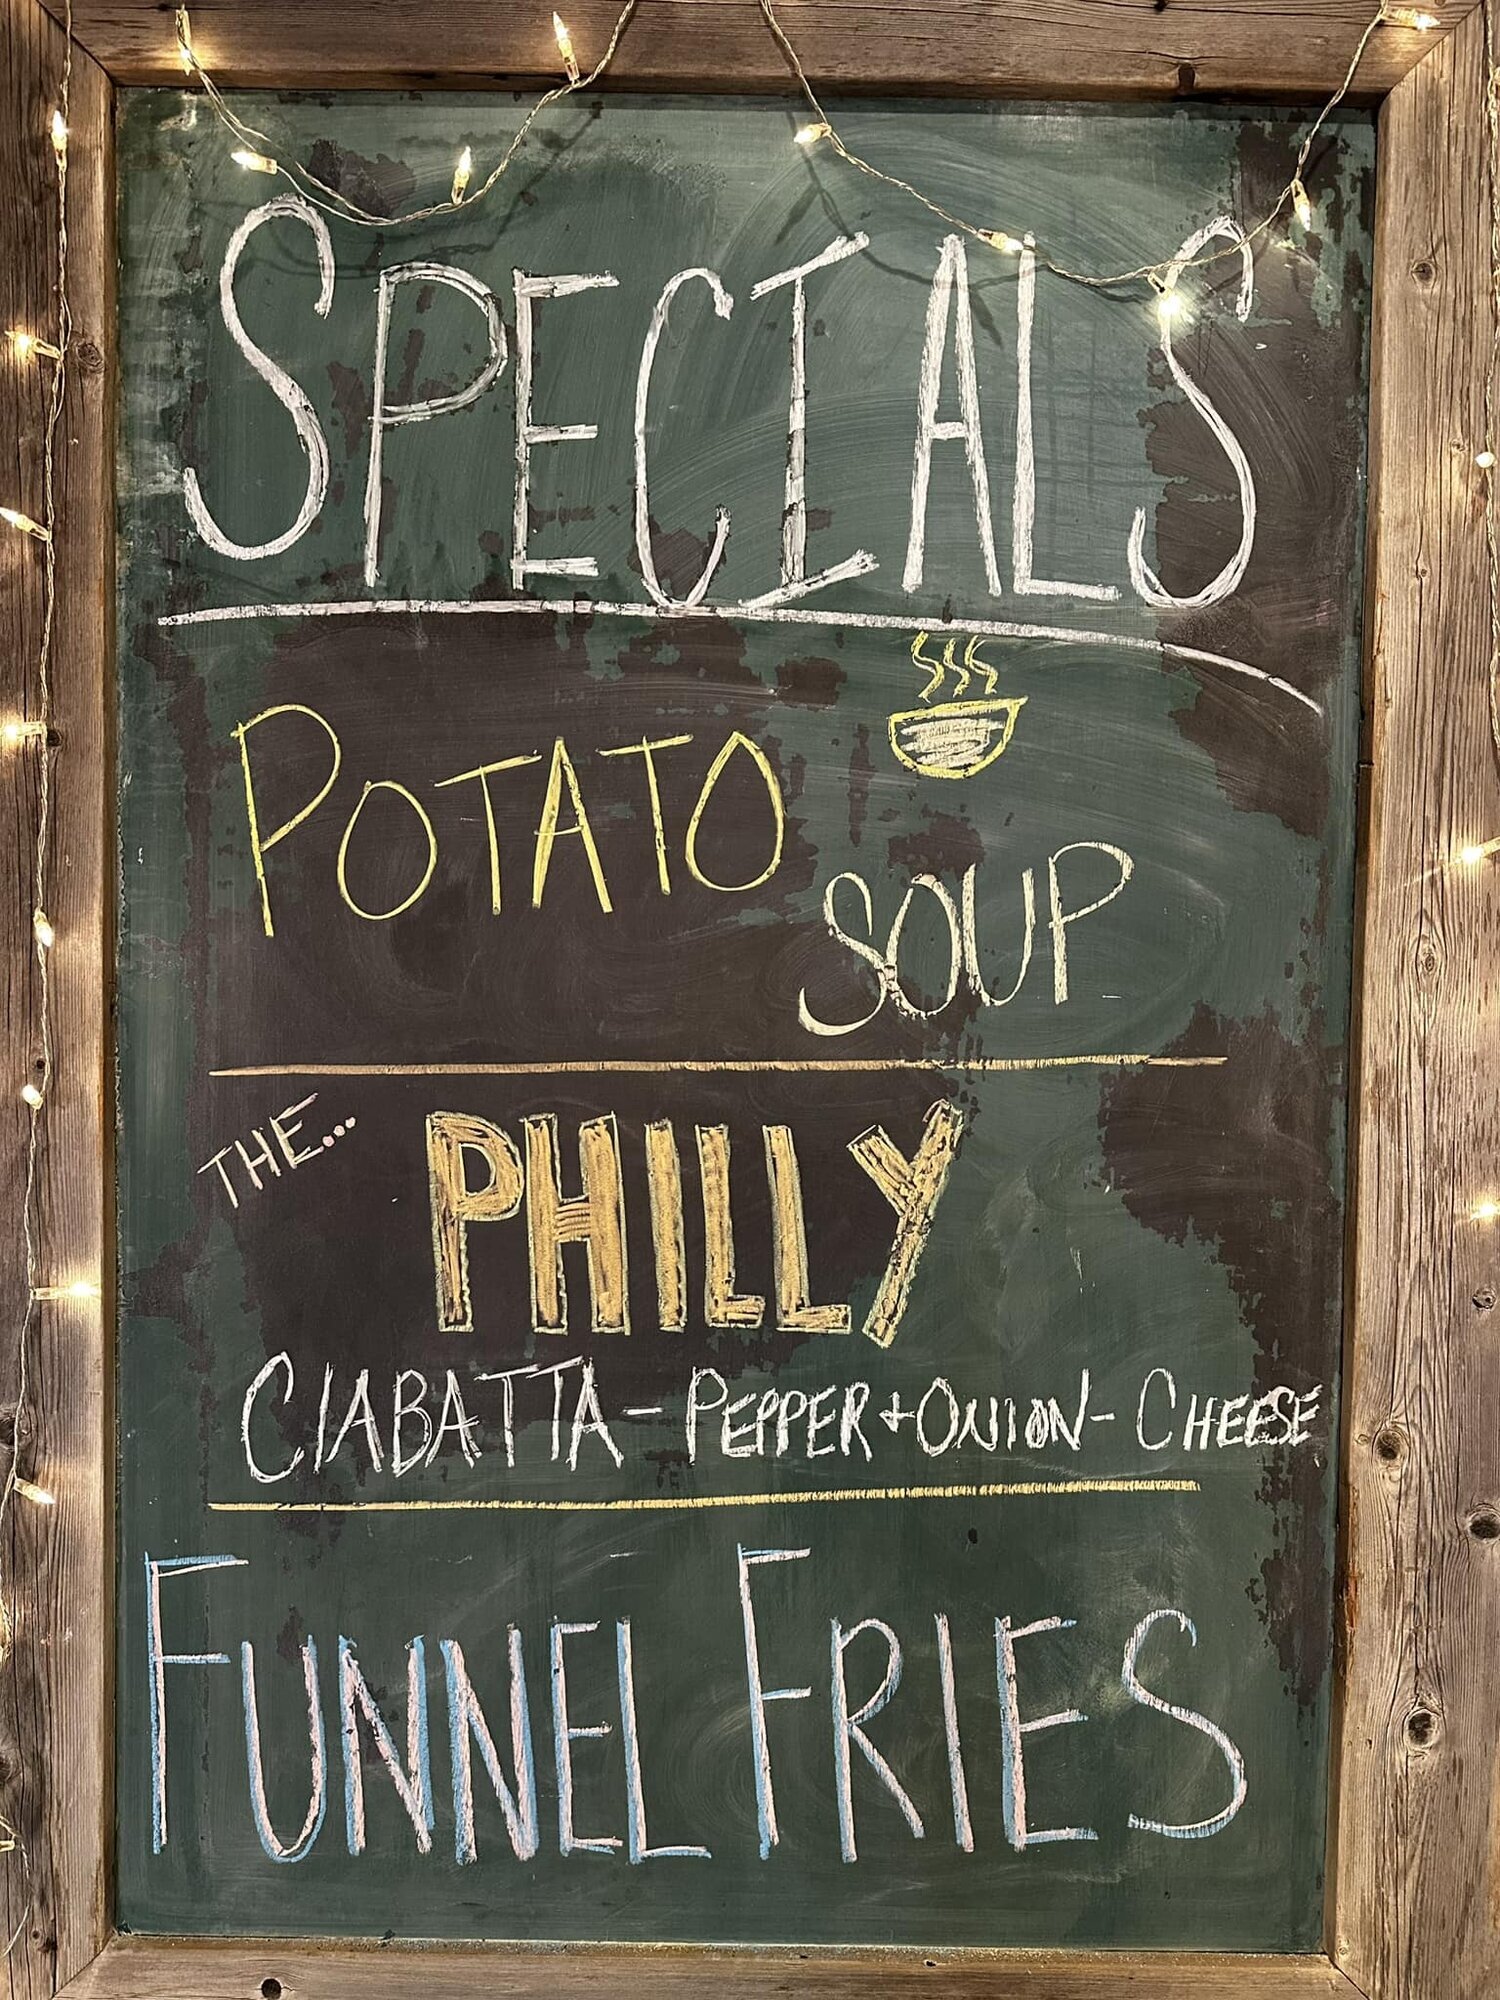 SPECIALS
POTATO
SOUP
THE...
PHILLY
CIABATTA - PEPPER + ONION - CHEESE
FUNNEL FRIES